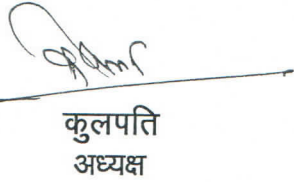 कुलपति
अध्यक्ष